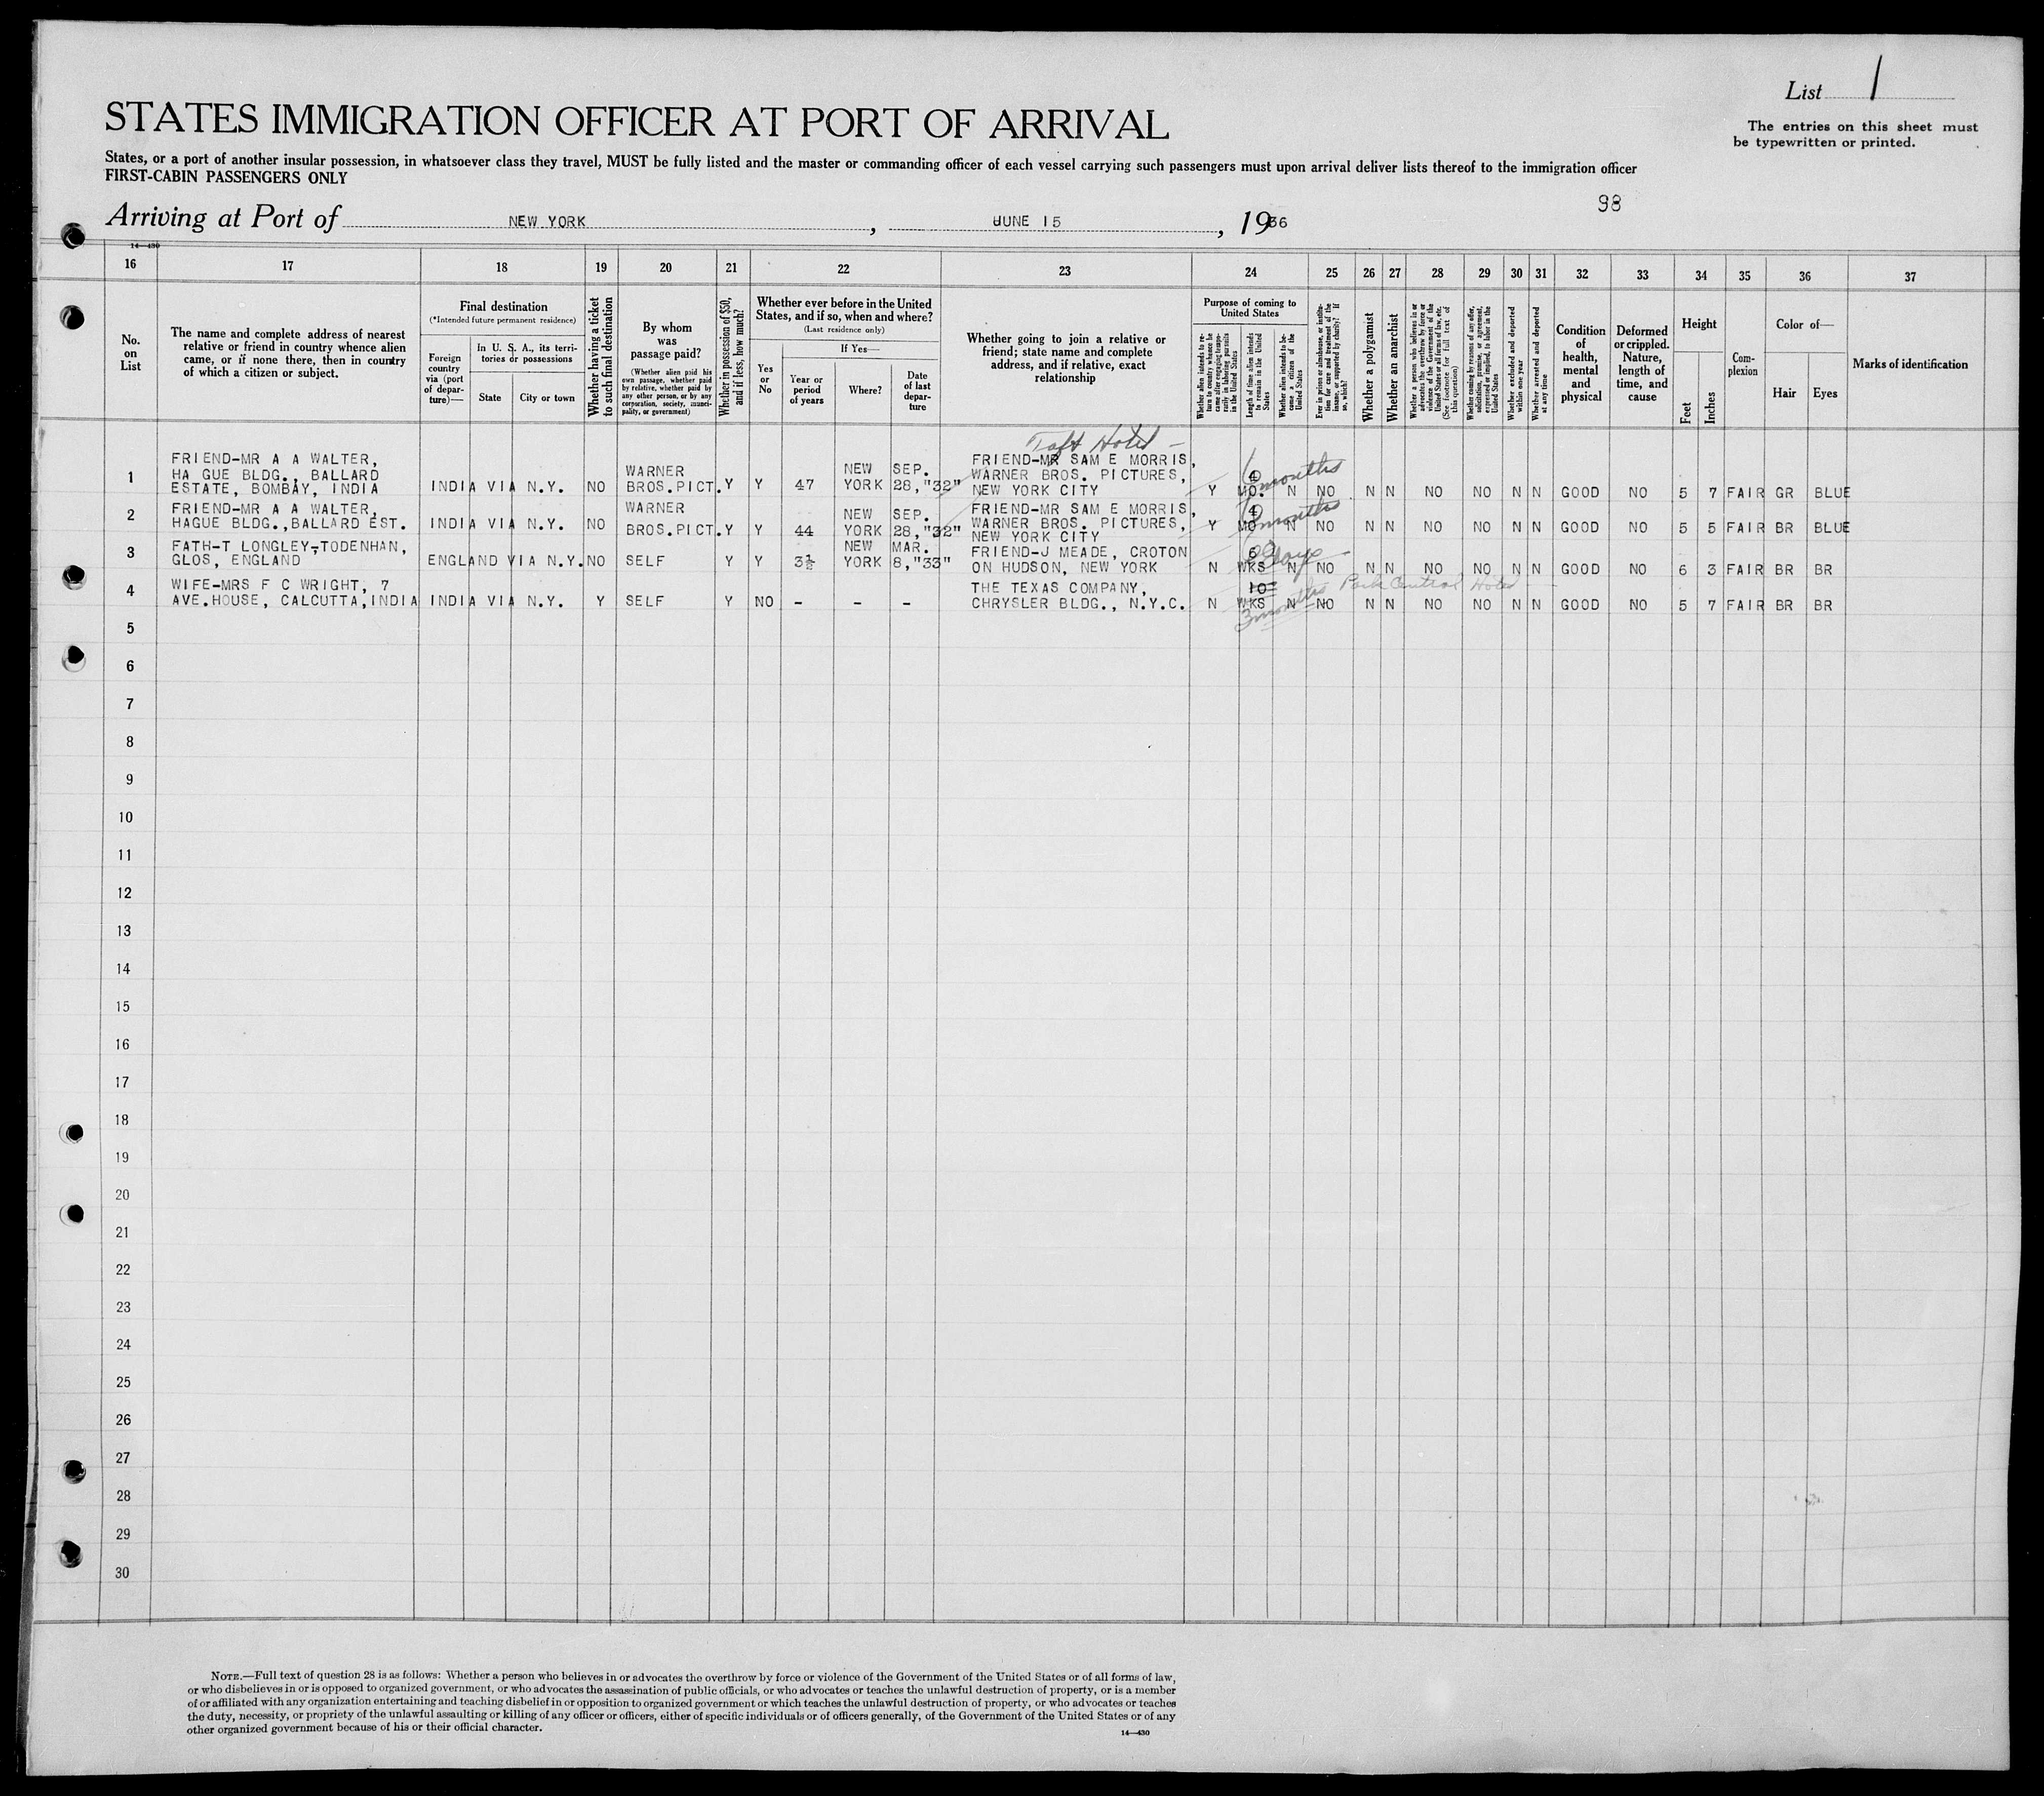 List 1
STATES IMMIGRATION OFFICER AT PORT OF ARRIVAL
The entries on this sheet must
be typewritten or printed.
States, or a port of another insular possession, in whatsoever class they travel, MUST be fully listed and the master or commanding officer of each vessel carrying such passengers must upon arrival deliver lists thereof to the immigration officer
FIRST-CABIN PASSENGERS ONLY
98
Arriving at Port of NEW YORK, JUNE 15, 1936
14—430
16 17 18 19 20 21 22 23 24 25 26 27 28 29 30 31 32 33 34 35 36 37
No.
on
List
The name and complete address of nearest
relative or friend in country whence alien
came, or if none there, then in country
of which a citizen or subject.
Final destination
(*Intended future permanent residence)
Foreign
country
via (port
of depar-
ture)—
In U. S. A., its terri-
tories or possessions
State
City or town
Whether having a ticket
to such final destination
By whom
was
passage paid?
(Whether alien paid his
own passage, whether paid
by relative, whether paid by
any other person, or by any
corporation, society, munici-
pality, or government)
Whether in possession of $50,
and if less, how much?
Whether ever before in the United
States, and if so, when and where?
(Last residence only)
Yes
or
No
If Yes—
Year or
period
of years
Where?
Date
of last
depar-
ture
Whether going to join a relative or
friend; state name and complete
address, and if relative, exact
relationship
Purpose of coming to
United States
Whether alien intends to re-
turn to country whence he
came after engaging tempo-
rarily in laboring pursuits
in the United States
Length of time alien intends
to remain in the United
States
Whether alien intends to be-
come a citizen of the
United States
Ever in prison or almshouse, or institu-
tion for care and treatment of the
insane, or supported by charity? If
so, which?
Whether a polygamist
Whether an anarchist
Whether a person who believes in or
advocates the overthrow by force or
violence of the Government of the
United States or all forms of law, etc.
(See footnote for full text of
this question)
Whether coming by reasons of any offer,
solicitation, promise, or agreement,
expressed or implied, to labor in the
United States
Whether excluded and deported
within one year
Whether arrested and deported
at any time
Condition
of
health,
mental
and
physical
Deformed
or crippled.
Nature,
length of
time, and
cause
Height
Feet
Inches
Com-
plexion
Color of—
Hair
Eyes
Marks of identification
Taft Hotel —
1
FRIEND-MR A A WALTER,
HA GUE BLDG., BALLARD
ESTATE, BOMBAY, INDIA
INDIA VIA N.Y. NO
WARNER
BROS.PICT. Y Y 47
NEW
YORK
SEP.
28,"32"
FRIEND-MR SAM E MORRIS,
WARNER BROS. PICTURES,
NEW YORK CITY
Y 4
MO. 6 months N NO N N NO NO N N GOOD NO 5 7 FAIR GR BLUE
2
FRIEND-MR A A WALTER,
HAGUE BLDG.,BALLARD EST.
INDIA VIA N.Y. NO
WARNER
BROS.PICT. Y Y 44
NEW
YORK
SEP.
28,"32"
FRIEND-MR SAM E MORRIS,
WARNER BROS. PICTURES,
NEW YORK CITY
Y 4
MO 6 months N NO N N NO NO N N GOOD NO 5 5 FAIR BR BLUE
3
FATH-T LONGLEY-TODENHAN,
GLOS, ENGLAND
ENGLAND VIA N.Y. NO SELF Y Y 3½
NEW
YORK
MAR.
8,"33"
FRIEND-J MEADE, CROTON
ON HUDSON, NEW YORK
N 6
WKS days N NO N N NO NO N N GOOD NO 6 3 FAIR BR BR
4
WIFE-MRS F C WRIGHT, 7
AVE.HOUSE, CALCUTTA,INDIA
INDIA VIA N.Y. Y SELF Y NO - - -
THE TEXAS COMPANY,
CHRYSLER BLDG., N.Y.C.
Park Central Hotel
N 10
WKS 3 months N NO N N NO NO N N GOOD NO 5 7 FAIR BR BR
5
6
7
8
9
10
11
12
13
14
15
16
17
18
19
20
21
22
23
24
25
26
27
28
29
30
NOTE.—Full text of question 28 is as follows: Whether a person who believes in or advocates the overthrow by force or violence of the Government of the United States or of all forms of law,
or who disbelieves in or is opposed to organized government, or who advocates the assassination of public officials, or who advocates or teaches the unlawful destruction of property, or is a member
of or affiliated with any organization entertaining and teaching disbelief in or opposition to organized government or which teaches the unlawful destruction of property, or who advocates or teaches
the duty, necessity, or propriety of the unlawful assaulting or killing of any officer or officers, either of specific individuals or of officers generally, of the Government of the United States or of any
other organized government because of his or their official character.
14—430